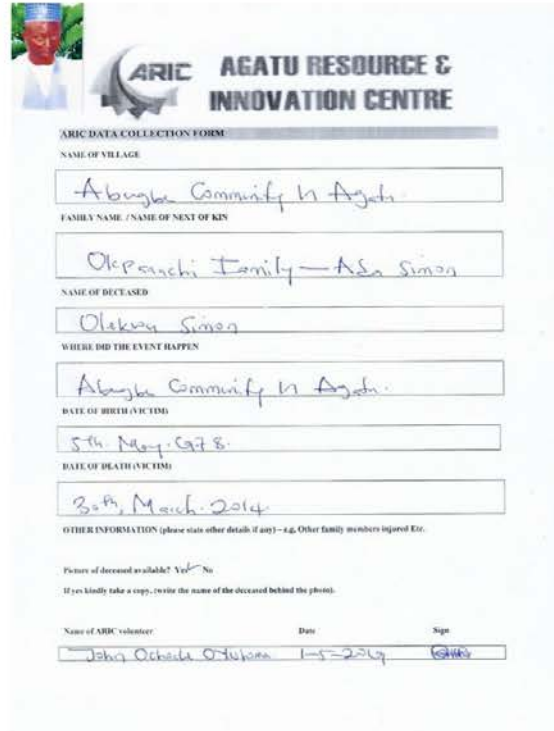 ARIC AGATU RESOURCE &
INNOVATION CENTRE
ARIC DATA COLLECTION FORM
NAME OF VILLAGE
Abugbe Community In Agatu.
FAMILY NAME / NAME OF NEXT OF KIN
Family — Simon
NAME OF DECEASED
Olekwu Simon
WHERE DID THE EVENT HAPPEN
Abugbe Community In Agatu.
DATE OF BIRTH (VICTIM)
5th. May.
DATE OF DEATH (VICTIM)
30th, March. 2014
OTHER INFORMATION (please state other details if any) – e.g. Other family members injured Etc.
Picture of deceased available? Yes No
If yes kindly take a copy, (write the name of the deceased behind the photo).
Name of ARIC volunteer Date Sign
John Ocheche 1-5-2019